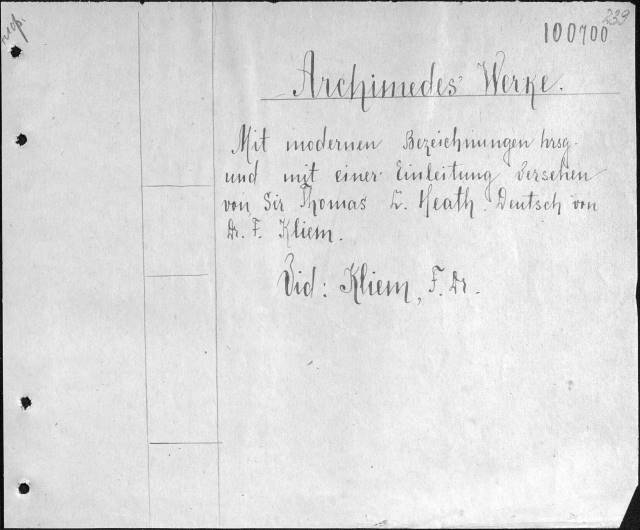 239
100700
Archimedes' Werke.
Mit modernen Bezeichnungen hrsg.
und mit einer Einleitung versehen
von Sir Thomas L. Heath. Deutsch von
Dr. F. Kliem.
Vid: Kliem, F. Dr.